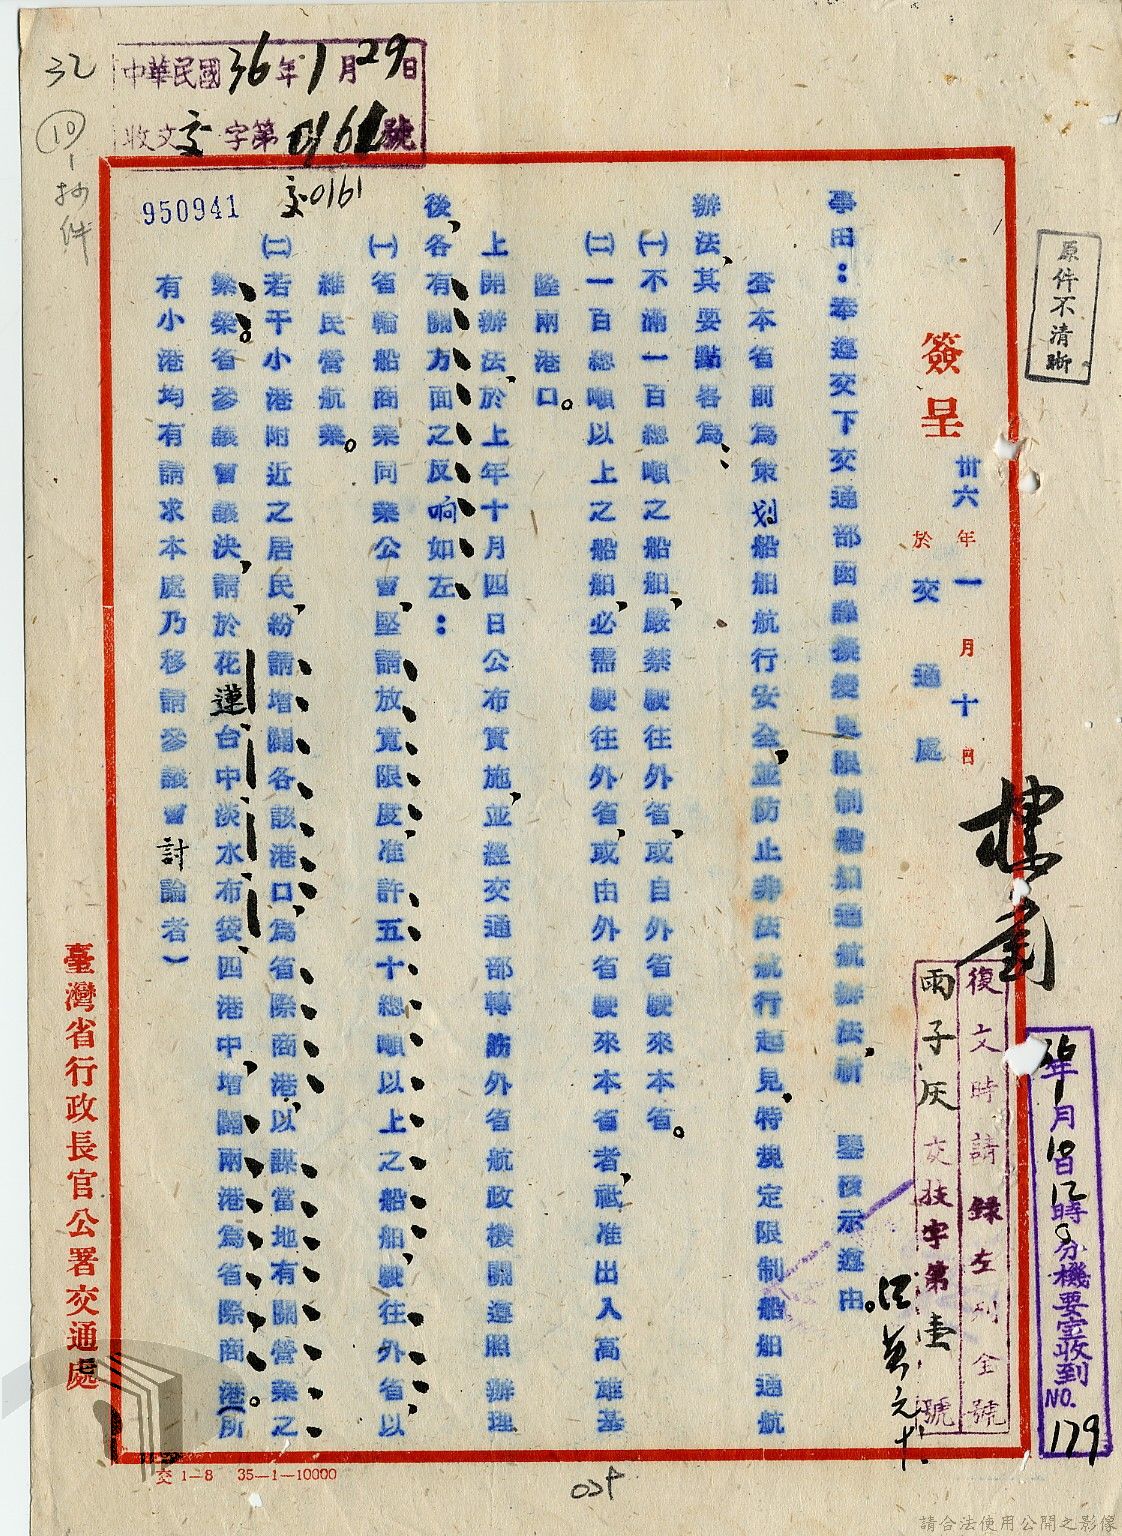 原件不清晰
簽呈 卅六年一月十日
於交通處
復文時請錄左列全號
雨子灰交技字第壹號
36年1月10日12時0分機要室收到
NO. 179
事由：奉遵交下交通部函議擬變更限制船舶通航辦法祈 鑒核示遵由。
查本省前為策划船舶航行安全、並防止非法航行起見、特規定限制船舶通航
辦法、其要點各為：
㈠不滿一百總噸之船舶、嚴禁駛往外省、或自外省駛來本省。
㈡一百總噸以上之船舶、必需駛往外省、或由外省駛來本省者、祗准出入高雄基
隆兩港口。
上開辦法、於上年十月四日公布實施、並經交通部轉飭外省航政機關遵照辦理
後、各有關方面之反响如左：
㈠省輪船商業同業公會、堅請放寬限度、准許五十總噸以上之船舶、駛往外省、以
維民營航業。
㈡若干小港附近之居民、紛請增闢各該港口、為省際商港、以謀當地有關營業之
繁榮。省參議會議決、請於花蓮台中淡水布袋、四港中、增闢兩港為省際商港。（所
有小港均有請求本處乃移請參議會討論者）
中華民國36年1月29日
收文交字第0161號
交0161
950941
32
10
抄件
臺灣省行政長官公署交通處
交 1—8 35—1—10000
請合法使用公開之影像